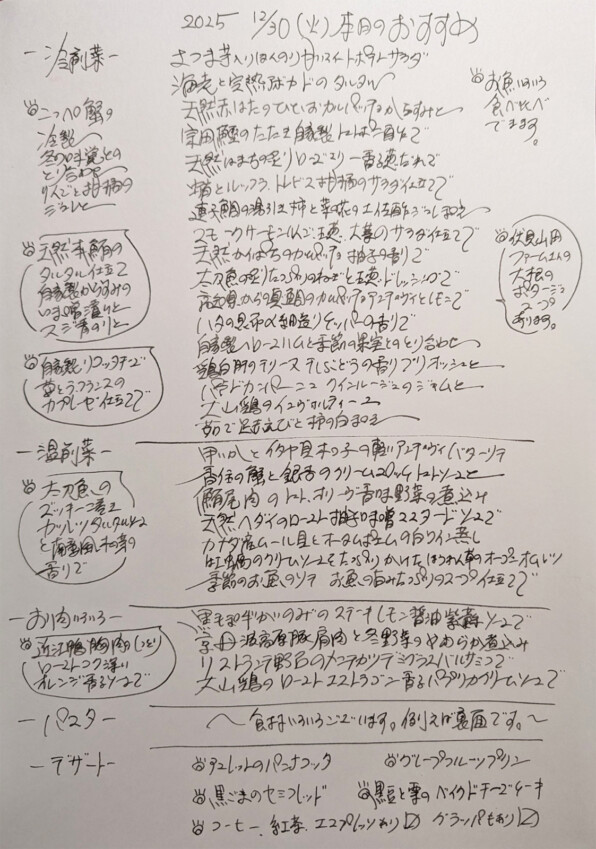 2025 12/30(火)本日のおすすめ
-冷前菜-
さつま芋入りほんのり甘いスイートポテトサラダ
海老と完熟アボカドのタルタル
お魚いろいろ
食べ比べ
できます。
コッペ蟹の
冷製
冬の味覚との
とり合わせ
リスでと柑橘の
ジュレと
天然赤はたのひときおカルパッチョからすみと
宗田鰹のたたき自家製トマトポン酢で
天然はまちの炙りローズマリー香る燻だれで
蛸とルッコラ、トレビス柑橘のサラダ仕立てで
連子鯛の湯引き柿と菜の花の土佐酢ジュレ和え
スモークサーモンりんご、燻、大葉のサラダ仕立てで
天然かんぱちのカルパッチョ柚子の香りで
太刀魚の炙りたっぷりのねぎと燻ドレッシングで
高知県からの真鯛のカルパッチョアンチョヴィとレモンで
ハタの昆布〆細造りペッパーの香りで
自家製ハムロースハムと季節の果実とのとり合わせ
鶏白肝のテリーヌ 干しぶどうの香りブリオッシュと
パテドカンパーニュ クインルージュのジャムと
大山鶏のインヴォルティーニ
茹で足赤えびと柿の白和え
天然本鮪の
タルタル仕立て
自家製からすみの
いま噌漬けと
スジ青のりと
自家製リコッタチーズ
苺とラ・フランスの
カプレーゼ仕立てで
伏見山田
ファームさんの
大根の
ポタージュ
スープ
あります。
-温前菜-
甲いかと イタヤ貝 木の子の軽いアンチョヴィバターソテー
香住の蟹と銀杏のクリームコロッケ トマトソースと
鮪尾肉のトマト、オリーヴ香味野菜の煮込み
天然ヘダイのロースト柚子味噌マスタードソースで
カナダ産ムール貝とホタルポムの白ワイン蒸し
紅ずわいのクリームソースをたっぷりかけたほうれん草のオープンオムレツ
季節のお魚のソテー お魚の白みたっぷりのスープ仕立てで
太刀魚の
ズッキーニ巻き
カツレツ タルタルソース
と南高梅、木の芽の
香りで
-お肉いろいろ-
黒毛和牛かいのみのステーキ レモン醤油 紫蘇ソースで
京丹波高原豚肩肉と冬野菜のやわらか煮込み
リストランテ野呂のメンチカツ デミグラスバルサミコで
大山鶏のロースト エストラゴン香るパプリカクリームソースで
近江鴨胸肉のしっとり
ロースト コク深い
オレンジ香るソースで
-パスタ-
〜 食材いろいろございます。例えば裏面です。〜
-デザート-
タブレットのパンナコッタ
グレープフルーツプリン
黒ごまのセミフレッド
黒豆と栗のベイクドチーズケーキ
コーヒー、紅茶、エスプレッソあり〼 グラッパもあり〼